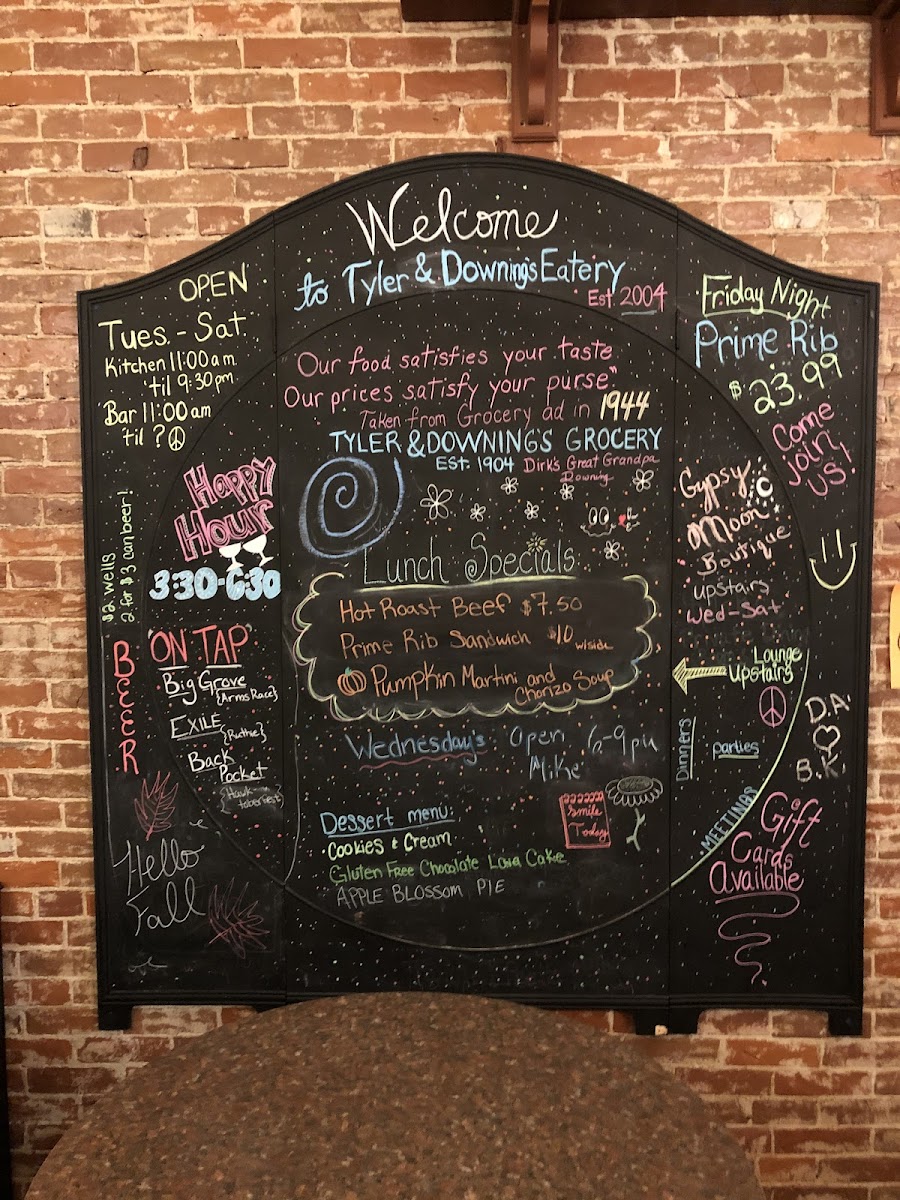 Welcome
to Tyler & Downing's Eatery
Est 2004
OPEN
Tues. - Sat
Kitchen 11:00am
'til 9:30pm.
Bar 11:00am
til ?
Happy
Hour
3:30-6:30
$2 wells
2 for $3 can beer!
BeeeR
ON TAP
Big Grove
{Arms Race}
EXILE
{Ruthie}
Back
Pocket
{Hawk-
toberfest}
Hello
Fall
Our food satisfies your taste
Our prices satisfy your purse"
Taken from Grocery ad in 1944
TYLER & DOWNING'S GROCERY
EST. 1904 Dirk's Great Grandpa
Downing
Lunch Specials
Hot Roast Beef $7.50
Prime Rib Sandwich $10 w/side
Pumpkin Martini and
Chorizo Soup
Wednesday's Open 6-9pm
Mike
Smile
Today
Dessert menu:
Cookies & Cream
Gluten Free Chocolate Lava Cake
APPLE BLOSSOM PIE
Friday Night
Prime Rib
$23.99
Come
join
us!
Gypsy
Moon
Boutique
upstairs
Wed-Sat
Lounge
Upstairs
Dinners
parties
MEETINGS
D.A.
B.K.
Gift
Cards
Available